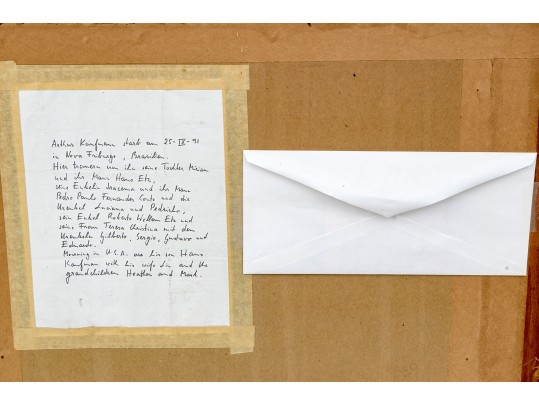 Arthur Kaufmann starb am 25-IX-91
in Nova Friburgo, Brasilien.
Hier trauern um ihn seine Tochter Miriam
und ihr Mann Hans Etz,
seine Enkelin Iracema und ihr Mann
Pedro Paulo Fernandes Couto und die
Urenkel Luciana und Pedrinho,
sein Enkel Roberto Etz und
seine Frau Teresa Christina mit den
Urenkeln Gilberto, Sergio, Gustavo und
Eduardo.
Mourning in U.S.A. are his son Hans
Kaufman with his wife and the
grandchildren Heather and Mark.